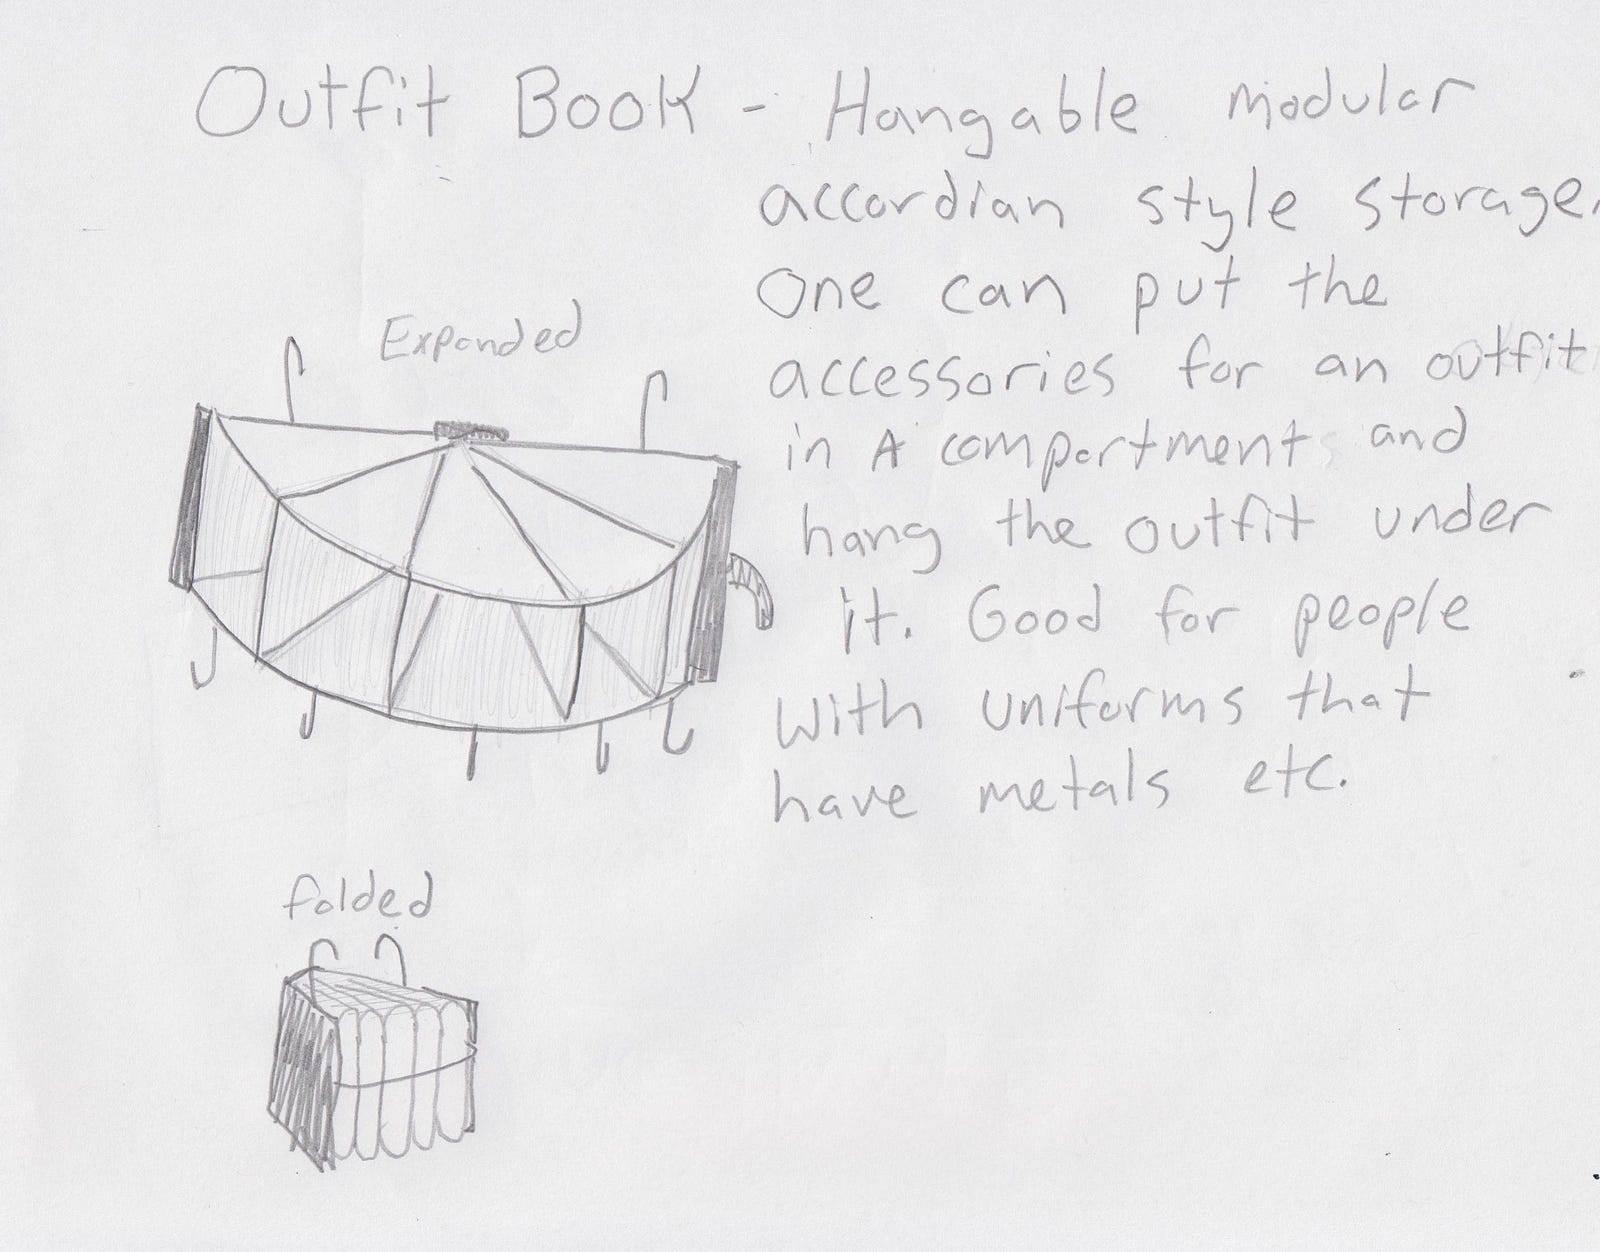 Outfit Book - Hangable modular
accordian style storage.
One can put the
accessories for an outfit
in A compartment and
hang the outfit under
it. Good for people
with uniforms that
have metals etc.
Expanded
folded